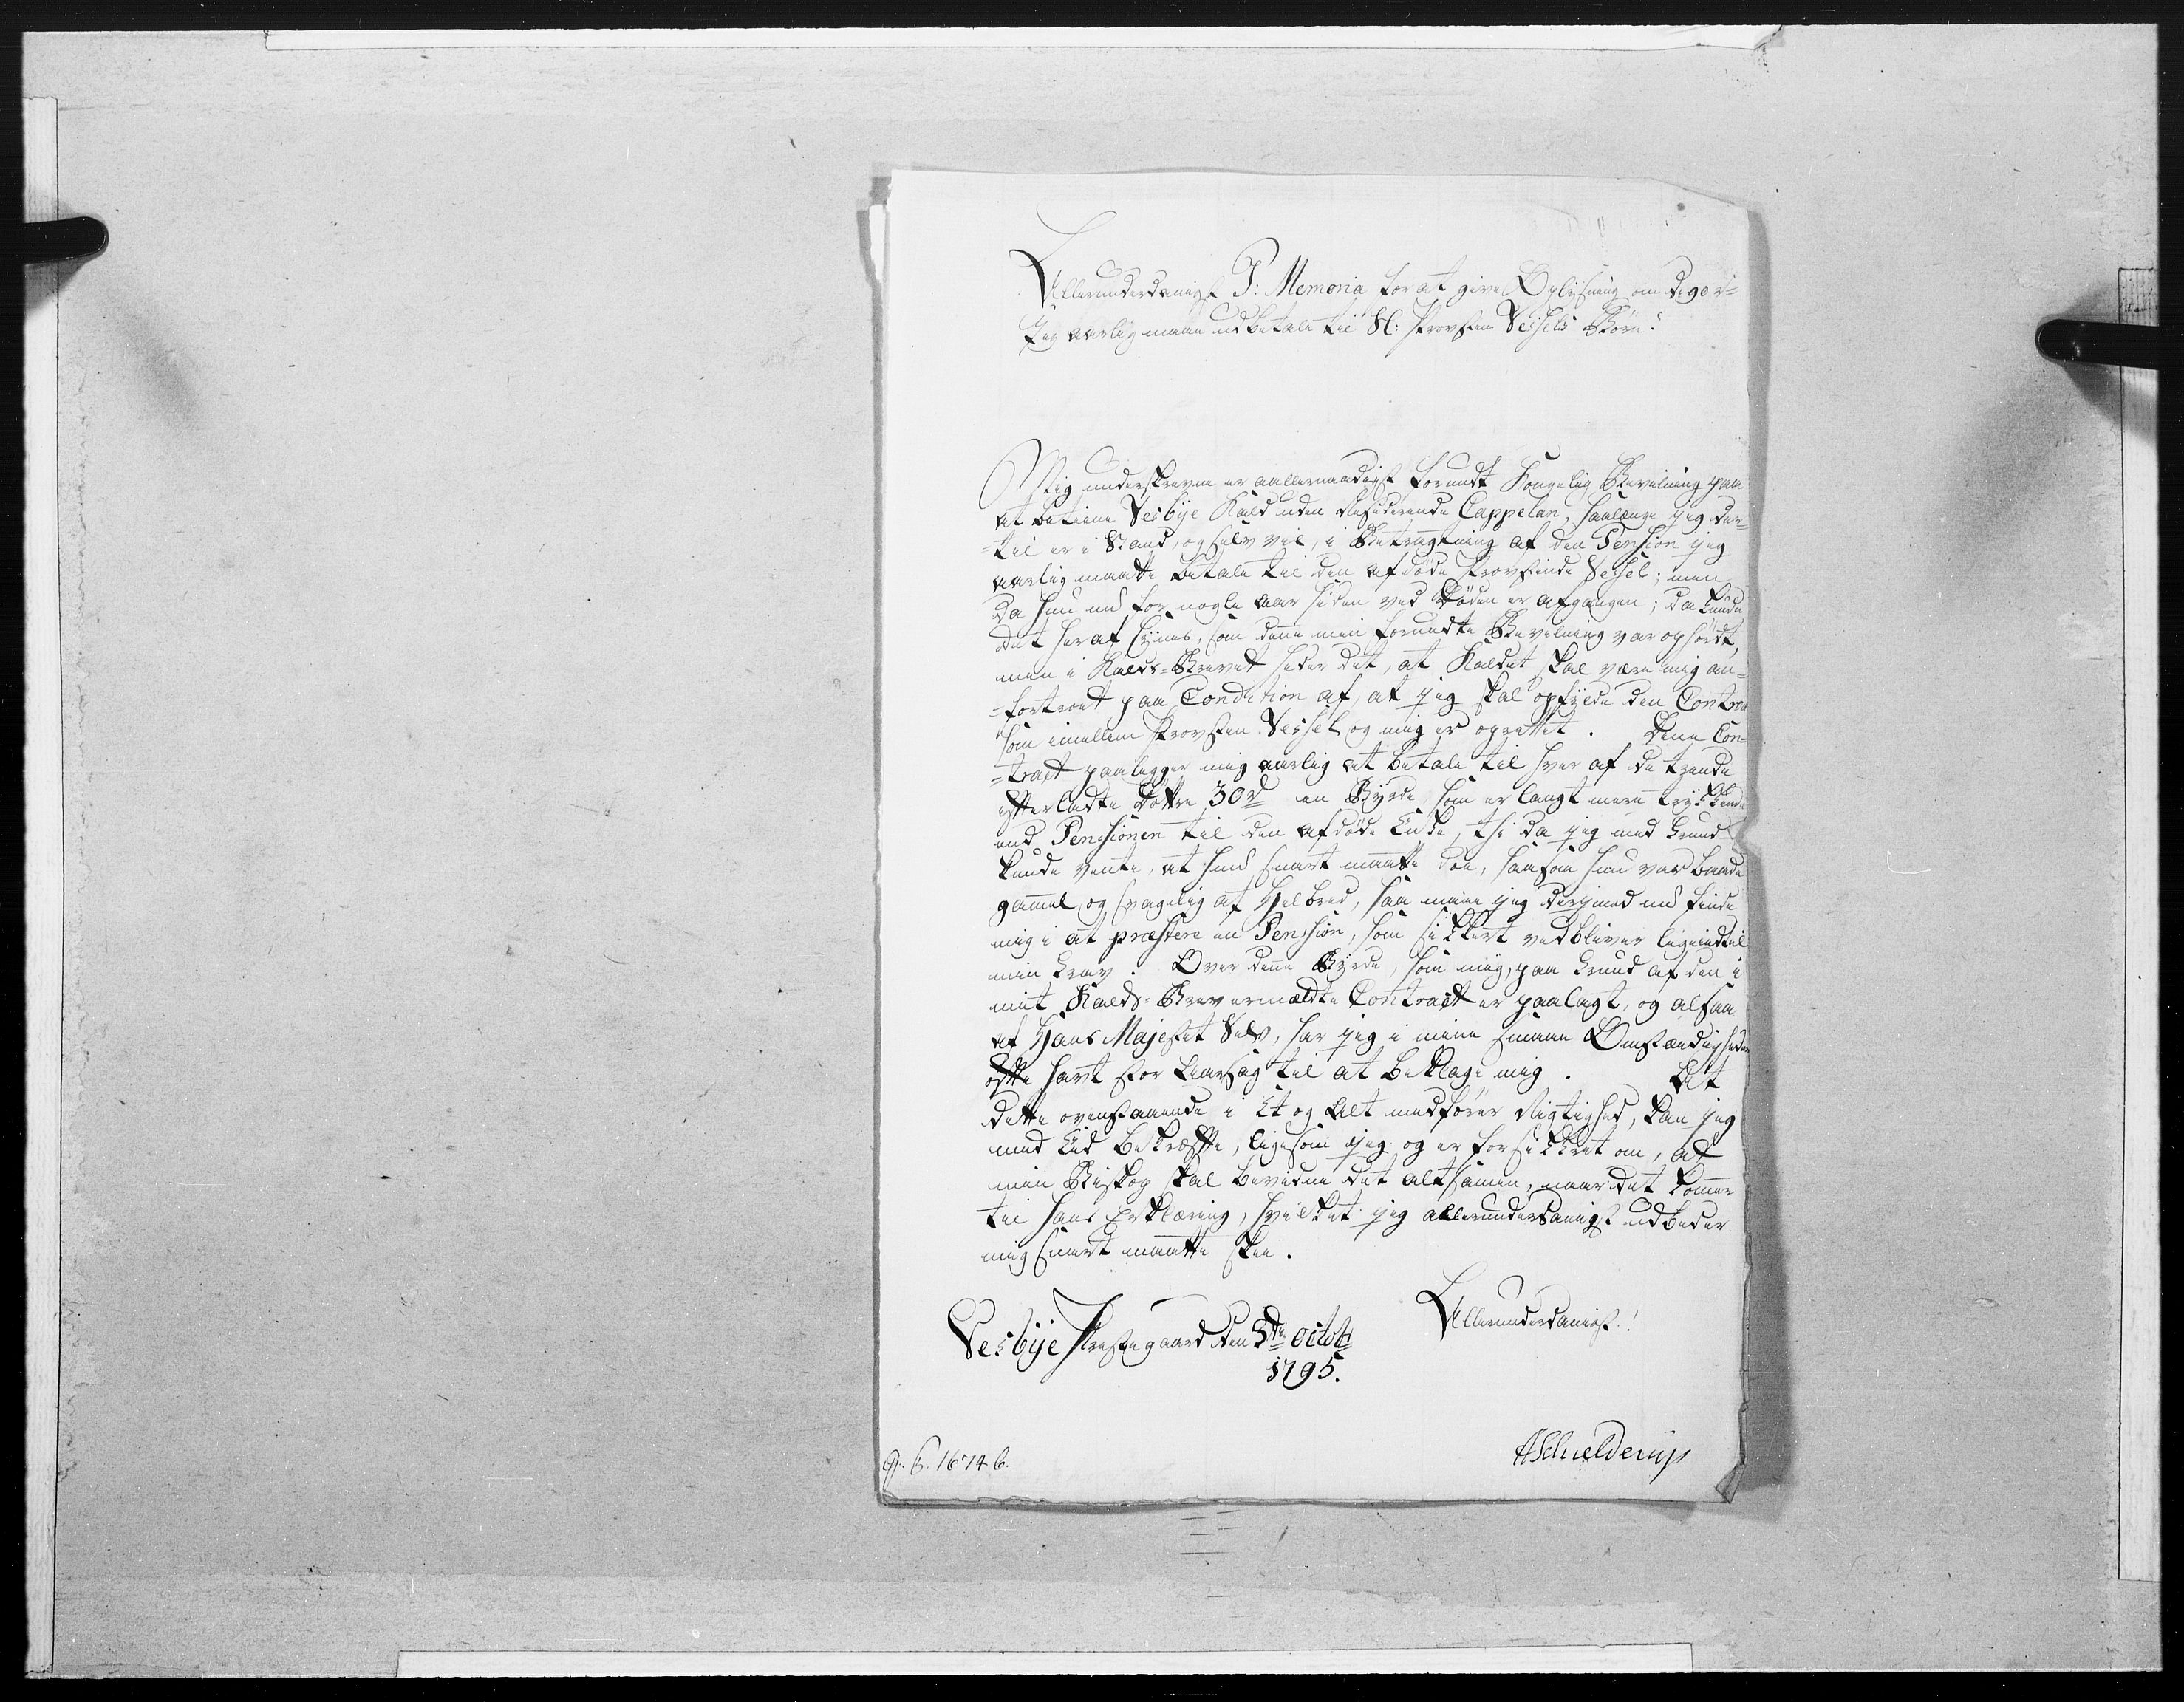 Allerunderdanigst P: Memoria for at give Oplysning om de 90 r=
Jeg aarlig maae udbetale til Sl: Provsten Vessels Børn.
Mig underskrevne er allernaadigst forundt Kongelig Bevilning paa
at betiene Vesbÿe Kald uden Residerende Cappelan, saalænge jeg der=
=til er i Stand, og selv vil, i Betragtning af den Pension jeg
aarlig maatte betale til den afdøde Provstinde Vessel; men
da hun nu for nogle Aar siden ved Døden er afgangen; da kunde
det heraf synes, som denne min forundte Bevilning var ophørdt,
men i Kalds-Brevet heder det, at Kaldet skal være mig an=
=fortroet paa Condition af, at jeg skal opfylde den Contra
som imellem Provsten Vessel og mig er oprettet. Denne Con=
=tract paalegger mig aarlig at betale til hver af de trende
efterladte Døttre 30 rd en Byrde som er langt mere trykkende
end Pensionen til den afdøde Enke, thi da jeg med Grund
kunde vente, at hun snart maatte døe, saasom hun var baade
gammel og svagelig af Helbred, saa maae jeg derjmod nu finde
mig i at præstere en Pension, som sikkert vedbliver ligeindtil
min Grav. Over denne Byrde, som mig, paa Grund af den i
mit Kalds-Brev ermældte Contract er paalagt, og altsaa
af Hans Majestet Selv, har jeg i mine smaae Omstændigheder
ofte havt stor Aarsag til at beklage mig. At
dette ovenstaaende i Et og Alt medfører Rigtighed, kan jeg
med Eed bekræfte, ligesom jeg og er forsikkret om, at
min Biskop skal bevidne det altsammen, naar det kommer
til hans Erklæring, hvilket jeg allerunderdanigst udbeder
mig snart maatte skee.
Vesbÿe Præstegaard den 3de Octobr
1795.
Allerunderdanigst!
HSchielderup
G. 6. 1674 b.